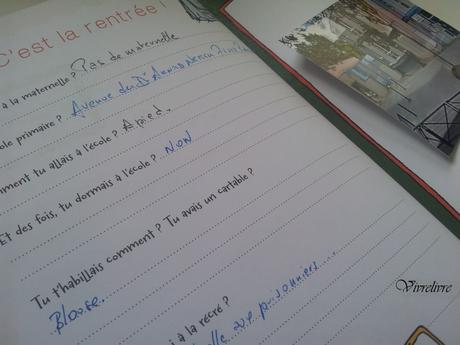 C'est la rentrée !
à la maternelle ? Pas de maternelle
ole primaire ? Avenue du Dr
mment tu allais à l'école ? A pied.
Et des fois, tu dormais à l'école ? NON
Tu t'habillais comment ? Tu avais un cartable ?
Blouse.
à la récré ?
prisonniers...
Vivrelivre